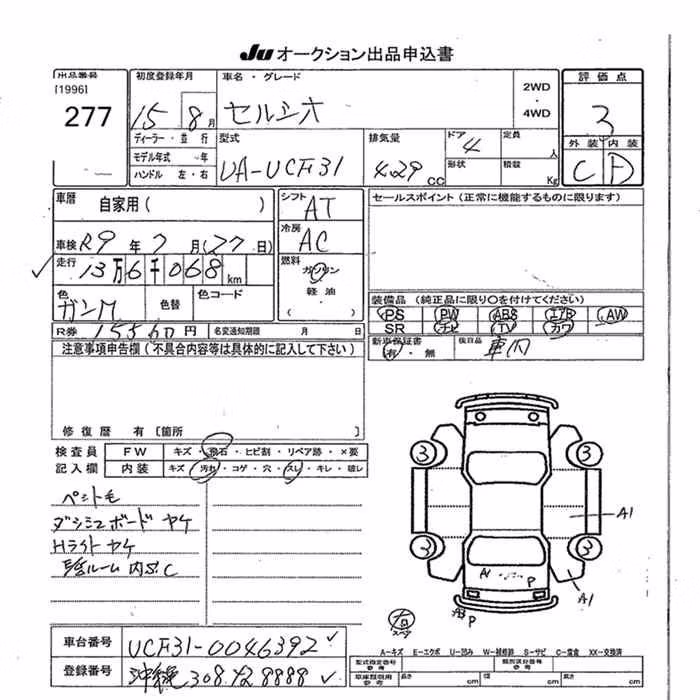 Ju オークション出品申込書
出品番号 初度登録年月 車名・グレード 2WD・4WD 評価点
[1996]
277 15 8月 セルシオ 3
ディーラー・並行 型式 排気量 ドア 定員 人 外装 内装
モデル年式 年 UA-UCF31 4.29 CC 4 形状 積載 Kg C D
ハンドル 左・右
車歴 自家用( ) シフト AT セールスポイント (正常に機能するものに限ります)
車検 R9年7月(27日) 冷房 AC
走行 13万6千068km 燃料 ガソリン
軽油
( )
色 ガンM 色替 色コード 装備品 (純正品に限り○を付けてください)
PS PW ABS エアB AW
R券 15560円 名変通知期限 月 日 SR ナビ TV カワ
注意事項申告欄(不具合内容等は具体的に記入して下さい) 新車保証書 有・無 後日品 車内
修復歴 有 [箇所 ]
検査員 FW キズ・飛石・ヒビ割・リペア跡・×要
記入欄 内装 キズ・汚れ・コゲ・穴・スレ・キレ・破レ
ダッシュボード ヤケ
Hライト ヤケ
ルーム内 S.C
3 3
A1
3 3
A1 P A1
A3 P
右 スペア
A=キズ E=エクボ U=凹み W=補修跡 S=サビ C=腐食 XX=交換済
車台番号 UCF31-0046392
登録番号 沖縄 308 ﾀ 8888
型式指定番号 参考 類別区分番号 参考
車庫証明用 参考 長さ cm 幅 cm 高さ cm